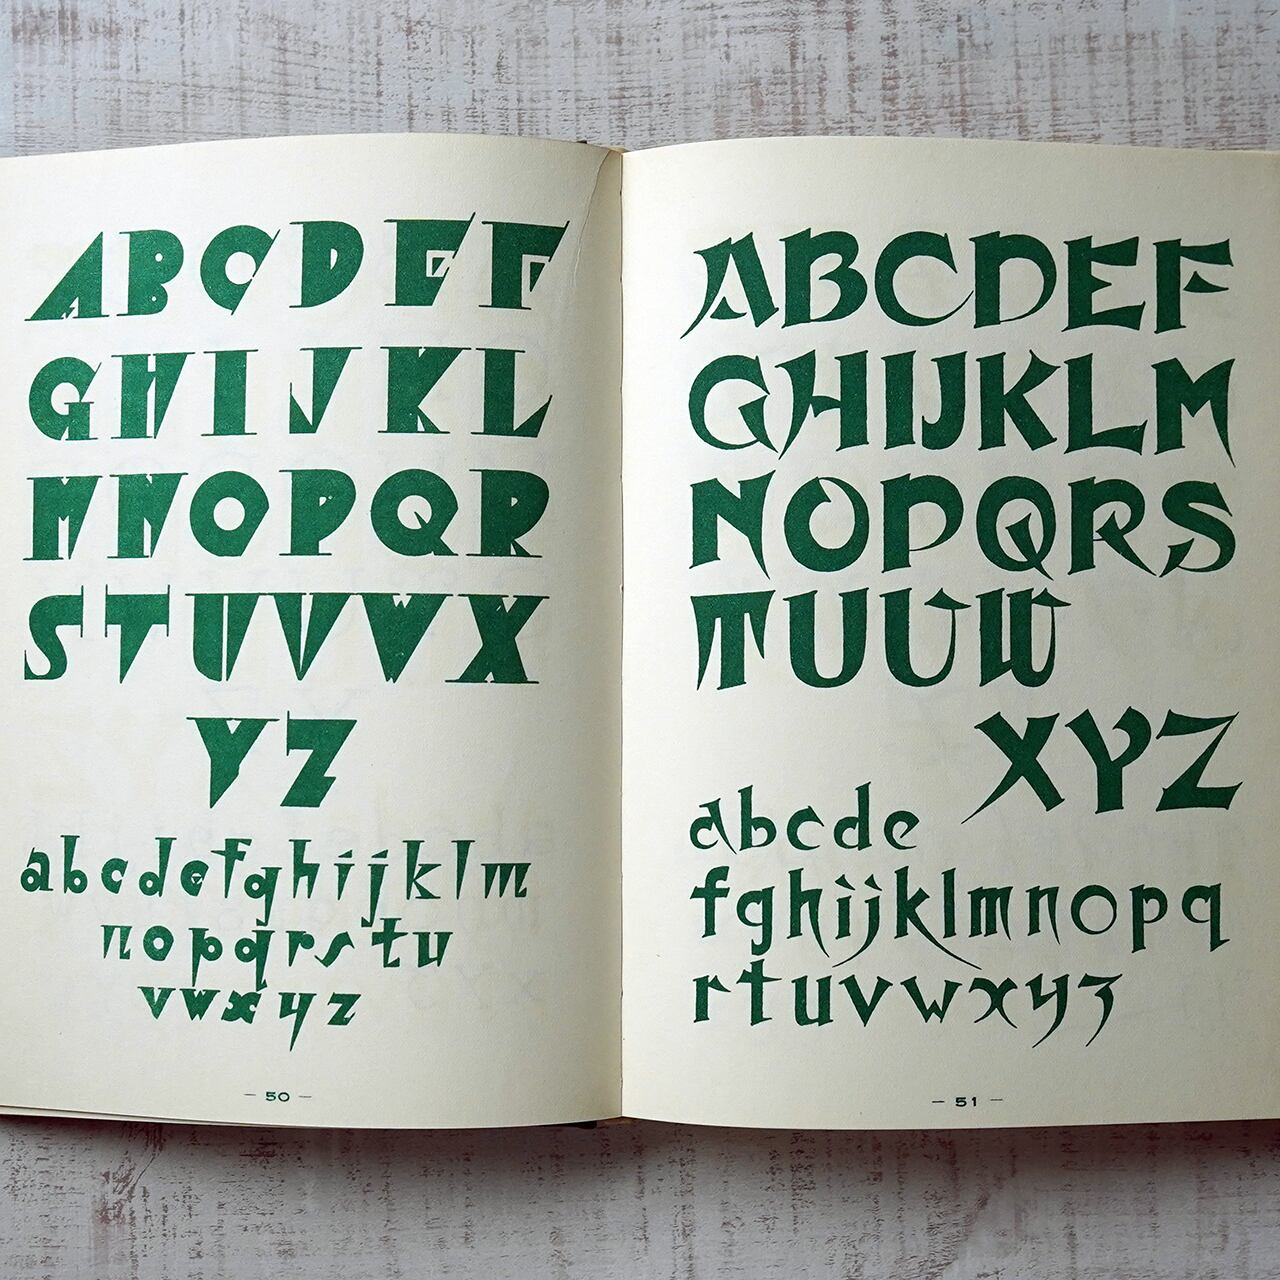 ABCDEF
GHIJKL
MNOPQR
STUVWX
YZ
abcdefghijklm
nopqrstu
vwxyz
— 50 —
ABCDEF
GHIJKLM
NOPQRS
TUUW
XYZ
abcde
fghijklmnopq
rtuvwxyz
— 51 —